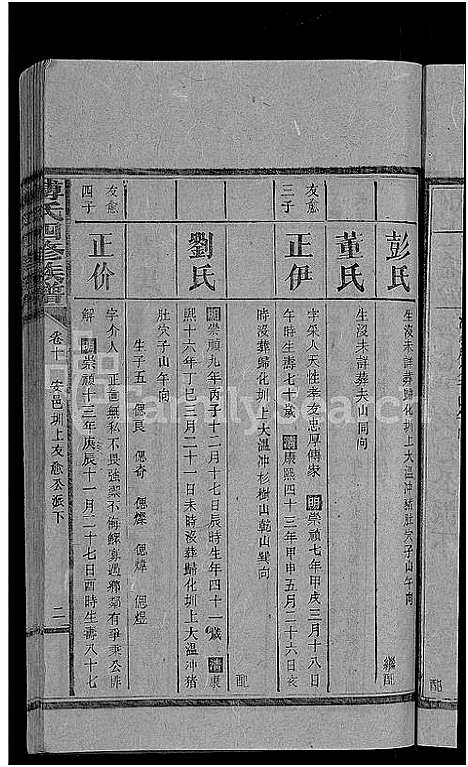 彭氏
生沒未詳葬歸化圳上大溫沖猪肚穴子山午向
繼配
董氏
生沒未詳葬夫山同向
配
友愈三子
正伊
字采人天性孝友忠厚傳家 明崇禎七年甲戌三月十八日
午時生壽七十歲 清康熙四十三年甲申五月二十六日亥
時沒葬歸化圳上大溫沖杉樹山乾山巽向
配
劉氏
明崇禎九年丙子十二月十七日辰時生年四十一歲 清康
熙十六年丁巳三月二十一日未時沒葬歸化圳上大溫沖猪
肚穴子山午向
生子五 偲良 偲奇 偲燦 偲煒 偲煜
友愈四子
正价
字介人 正直無私不畏強禦不侮鰥寡遇鄉鄰有爭秉公排
解 明崇禎十三年庚辰十一月二十七日酉時生壽八十七
氏四修族譜
卷十 安邑圳上友愈公派下
二
FamilySearch